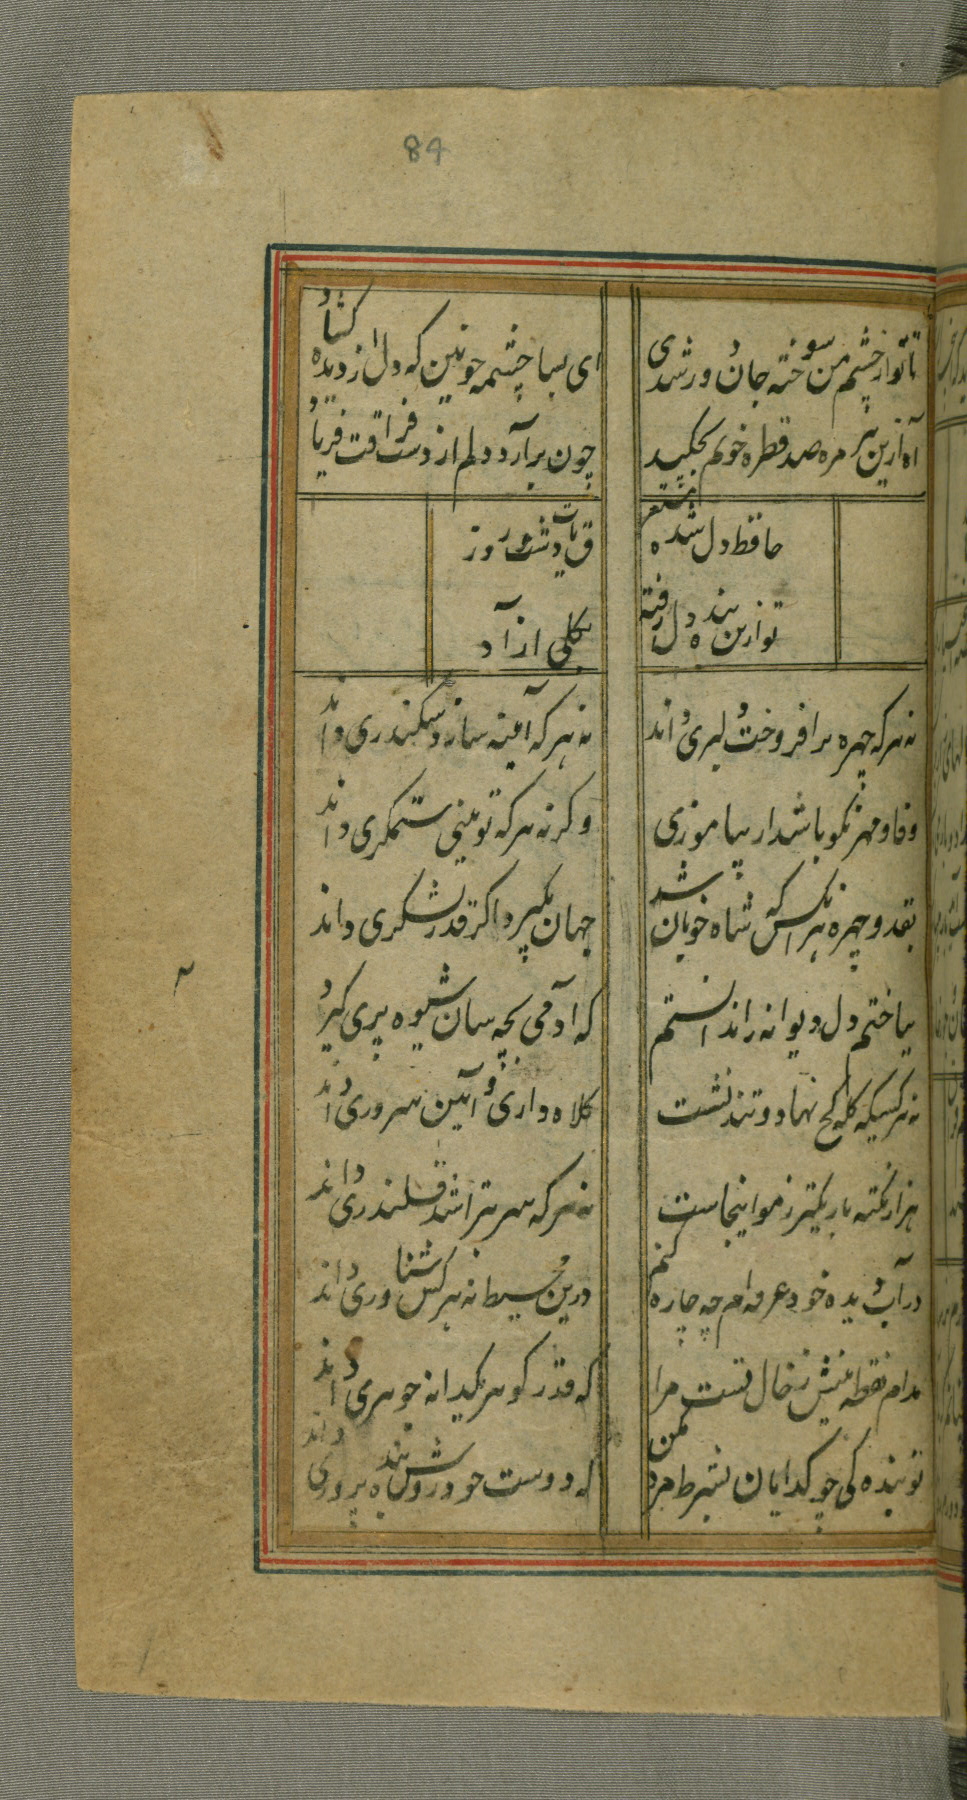 84
تا تو از چشم من سوخته جان دور شدی
ای بسا چشمه خونین که دل از دیده کشاد
از بن هر مژه صد قطره خونم بچکید
چون برآرد دلم از دست فراقت فریاد
حافظ دل شده مستغرق یادت شب و روز
تو ازین بنده دل رفته بکلی آزاد
نه هر که چهره برافروخت دلبری داند
نه هر که آینه سازد سکندری داند
وفا و مهر نکو باشد ار بیاموزی
وکرنه هر که تو بینی ستمکری داند
بقد و چهره هر آنکس که شاه خوبان شد
جهان بکیرد اکر قدر لشکری داند
بباختم دل دیوانه را ندانستم
که آدمی بچه سان شیوه پری کیرد
نه هر کسیکه کله کج نهاد و تند نشست
کلاه داری و آیین سروری داند
هزار نکته باریکتر ز مو اینجاست
نه هر که سر بتراشد قلندری داند
در آب دیده خود غرقه ام چه چاره کنم
درین محیط نه هر کس شناوری داند
مدار نقطه بینش ز خال تست مرا
که قدر کوهر یکدانه جوهری داند
تو بندکی چو کدایان بشرط مزد مکن
که دوست خود روش بنده پروری داند